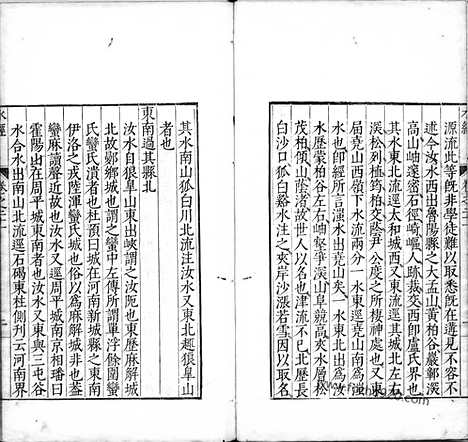 源流此等既非學徒所究不容不
述今汝水西出魯陽縣之大盂山黃柏谷巖鄣深
高山岫邃密石徑崎嶇人跡裁交西即盧氏界也
其水東北流逕太和城西又東流逕其城北左右深
松列植筠柏交蔭尹公度之所棲神處也又東
屆堯山西嶺下水流兩分一水東逕堯山南為滍
水也即經所言滍水出堯山矣一水東北出為汝
水歷蒙柏谷左右岫壑爭深山阜競高夾水層松
茂柏傾山蔭渚故世人以名也津流不已北歷長
白沙口狐白溪水注之夾岸沙漲若雪因以取名
其水南山狐白川北流注汝水又東北趣狼皐山
者也
東南過其縣北
汝水自狼皐山東出峽謂之汝阨也東歷麻解城
北故鄤鄉城也謂之蠻中左傳所謂單浮餘圍蠻
氏蠻氏潰者也杜預曰城在河南新城縣之東南
伊洛之戎陸渾蠻氏城也俗以為麻解城非也蓋
蠻麻讀聲近故也汝水又逕周平城南京相璠曰
霍陽山在周平城東南者也汝水又東與三屯谷
水合水出南山北流逕石碣東柱側刋云河南界